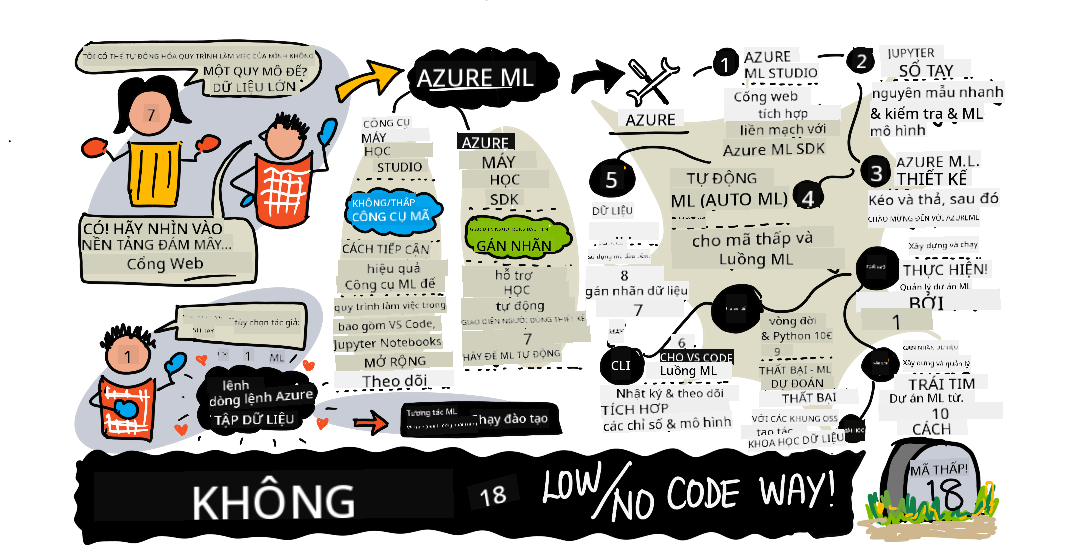 TÔI CÓ THỂ TỰ ĐỘNG HÓA QUY TRÌNH LÀM VIỆC CỦA MÌNH KHÔNG
MỘT QUY MÔ ĐỂ?
DỮ LIỆU LỚN
7
CÓ! HÃY NHÌN VÀO
NỀN TẢNG ĐÁM MÂY...
Cổng Web
AZURE ML
CÔNG CỤ
MÁY
HỌC
STUDIO
KHÔNG/THẤP
CÔNG CỤ MÃ
CÁCH TIẾP CẬN
hiệu quả
Công cụ ML để
quy trình làm việc trong
bao gồm VS Code,
Jupyter Notebooks
MỞ RỘNG
Theo dõi
AZURE
MÁY
HỌC
SDK
GÁN NHÃN
hỗ trợ
HỌC
tự động
GIAO DIỆN NGƯỜI DÙNG THIẾT KẾ
7
HÃY ĐỂ ML TỰ ĐỘNG
AZURE
1
AZURE
ML STUDIO
Cổng web
tích hợp
liền mạch với
Azure ML SDK
2
JUPYTER
SỔ TAY
nguyên mẫu nhanh
& kiểm tra & ML
mô hình
3
AZURE M.L.
THIẾT KẾ
Kéo và thả, sau đó
CHÀO MỪNG ĐẾN VỚI AZUREML
TỰ ĐỘNG
ML (AUTO ML)
4
cho mã thấp và
Luồng ML
5
DỮ LIỆU
8
gán nhãn dữ liệu
7
Xây dựng và chạy
THỰC HIỆN!
Quản lý dự án ML
BỞI
1
CLI
6
CHO VS CODE
Luồng ML
Nhật ký & theo dõi
TÍCH HỢP
các chỉ số & mô hình
vòng đời
& Python 10€
9
THẤT BẠI - ML
DỰ ĐOÁN
THẤT BẠI
VỚI CÁC KHUNG OSS
tạo tác
KHOA HỌC DỮ LIỆU
GÁN NHÃN DỮ LIỆU
Xây dựng và quản lý
TRÁI TIM
Dự án ML từ.
10
CÁCH
tùy chọn tác giả:
1
1
ML
lệnh
dòng lệnh Azure
TẬP DỮ LIỆU
Tương tác ML
Chạy đào tạo
KHÔNG
18
LOW/NO CODE WAY!
MÃ THẤP!
18